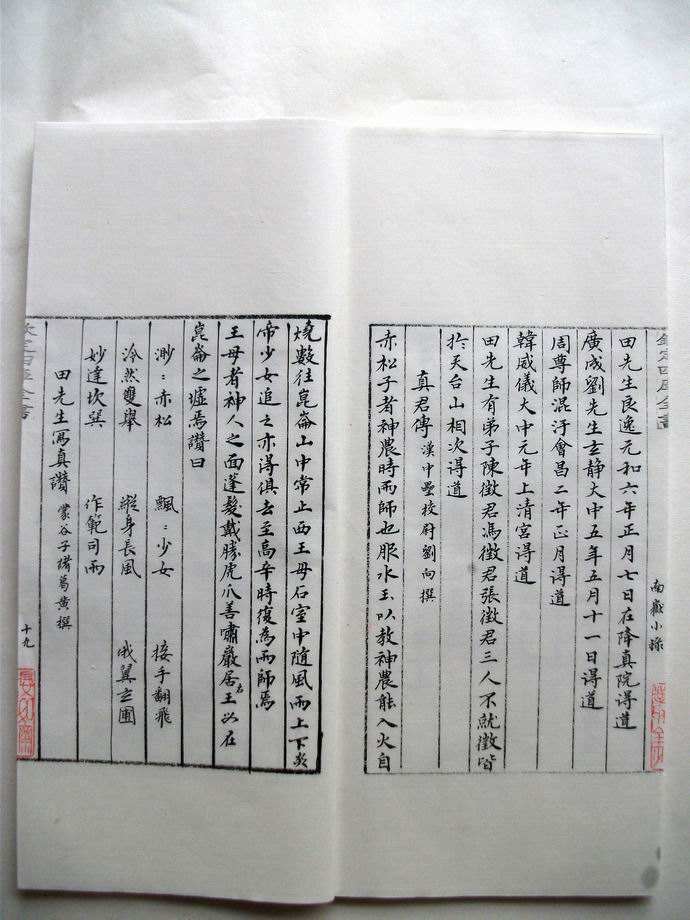 南嶽小錄
田先生良逸元和六年正月七日在降真院得道
廣成劉先生玄靜大中五年五月十一日得道
周尊師混汙會昌二年正月得道
韓威儀大中元年上清宮得道
田先生有弟子陳徵君馮徵君張徵君三人不就徵皆
於天台山相次得道
真君傳 漢中壘校尉劉向撰
赤松子者神農時雨師也服水玉以教神農能入火自
燒數往崑崙山中常止西王母石室中隨風雨上下炎
帝少女追之亦得俱去至高辛時復為雨師焉
王母者神人之面蓬髮戴勝虎爪善嘯巖居名王以在
崑崙之墟焉讚曰
渺：赤松 飄：少女 接手翻飛
泠然雙舉 縱身長風 俄翼玄圃
妙達坎巽 作範司雨
田先生寫真讚 蒙谷子諸葛黄撰
十九